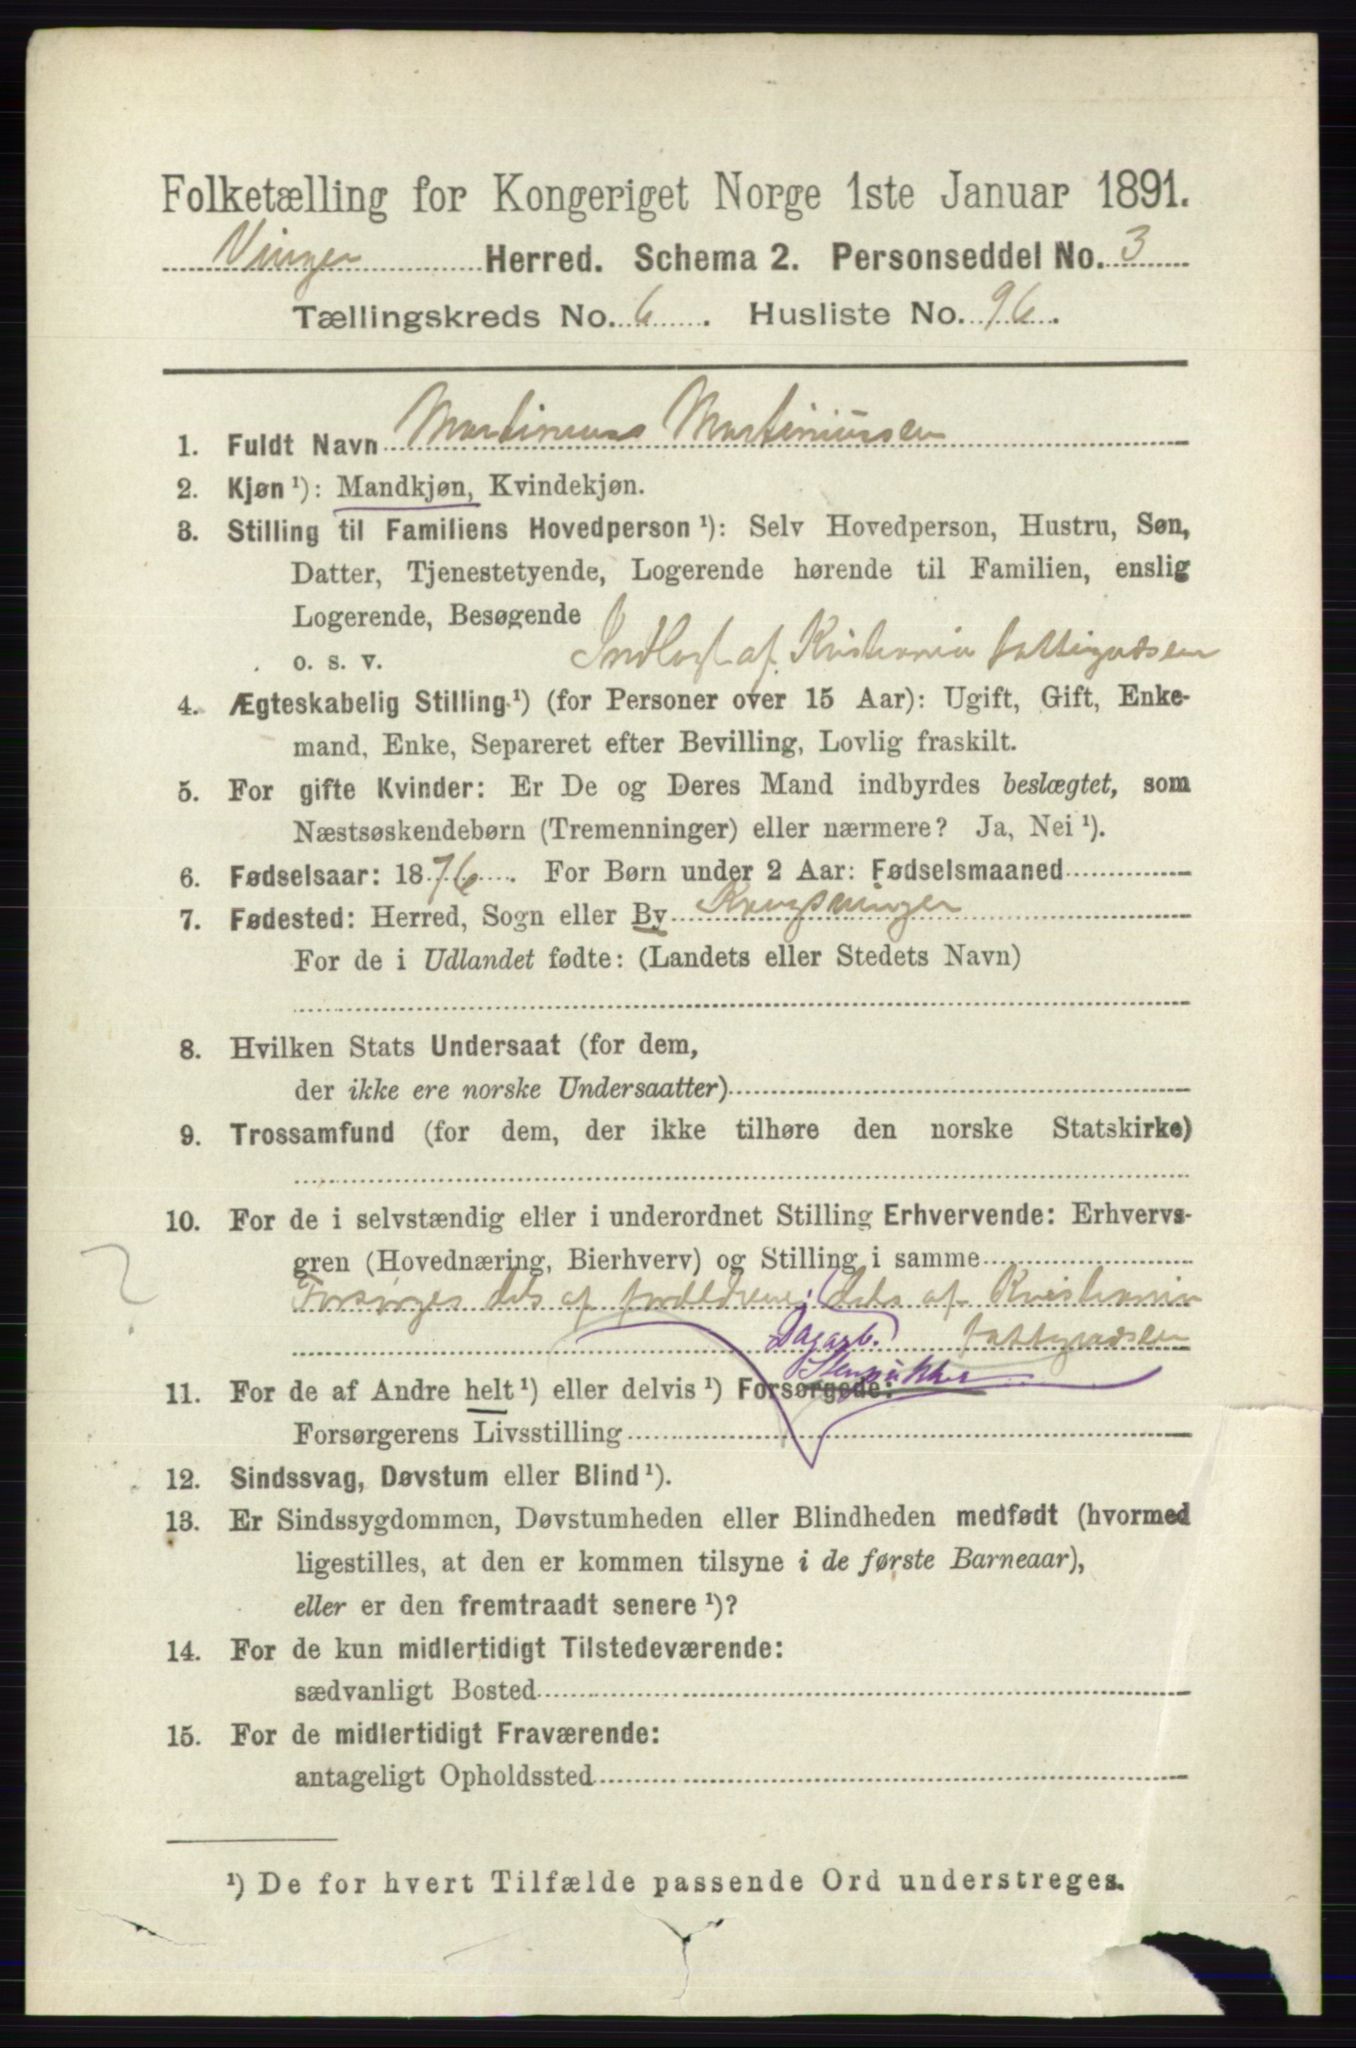 Folketælling for Kongeriget Norge 1ste Januar 1891.
Vinger Herred. Schema 2. Personseddel No. 3
Tællingskreds No. 6. Husliste No. 96.
1. Fuldt Navn Martinius Martiniussen
2. Kjøn ¹): Mandkjøn, Kvindekjøn.
3. Stilling til Familiens Hovedperson ¹): Selv Hovedperson, Hustru, Søn,
Datter, Tjenestetyende, Logerende hørende til Familien, enslig
Logerende, Besøgende
o. s. v. Indlagt af Kristiania fattigvæsen
4. Ægteskabelig Stilling ¹) (for Personer over 15 Aar): Ugift, Gift, Enke-
mand, Enke, Separeret efter Bevilling, Lovlig fraskilt.
5. For gifte Kvinder: Er De og Deres Mand indbyrdes beslægtet, som
Næstsøskendebørn (Tremenninger) eller nærmere? Ja, Nei ¹).
6. Fødselsaar: 1876. For Børn under 2 Aar: Fødselsmaaned
7. Fødested: Herred, Sogn eller By Kongsvinger
For de i Udlandet fødte: (Landets eller Stedets Navn)
8. Hvilken Stats Undersaat (for dem,
der ikke ere norske Undersaatter)
9. Trossamfund (for dem, der ikke tilhøre den norske Statskirke)
10. For de i selvstændig eller i underordnet Stilling Erhvervende: Erhvervs-
gren (Hovednæring, Bierhverv) og Stilling i samme
Forsørges dels af forældrene, dels af Kristiania
Dagarb. fattigvæsen
11. For de af Andre helt ¹) eller delvis ¹) Forsørgede:
Forsørgerens Livsstilling
12. Sindssvag, Døvstum eller Blind ¹).
13. Er Sindssygdommen, Døvstumheden eller Blindheden medfødt (hvormed
ligestilles, at den er kommen tilsyne i de første Barneaar),
eller er den fremtraadt senere ¹)?
14. For de kun midlertidigt Tilstedeværende:
sædvanligt Bosted
15. For de midlertidigt Fraværende:
antageligt Opholdssted
¹) De for hvert Tilfælde passende Ord understreges.